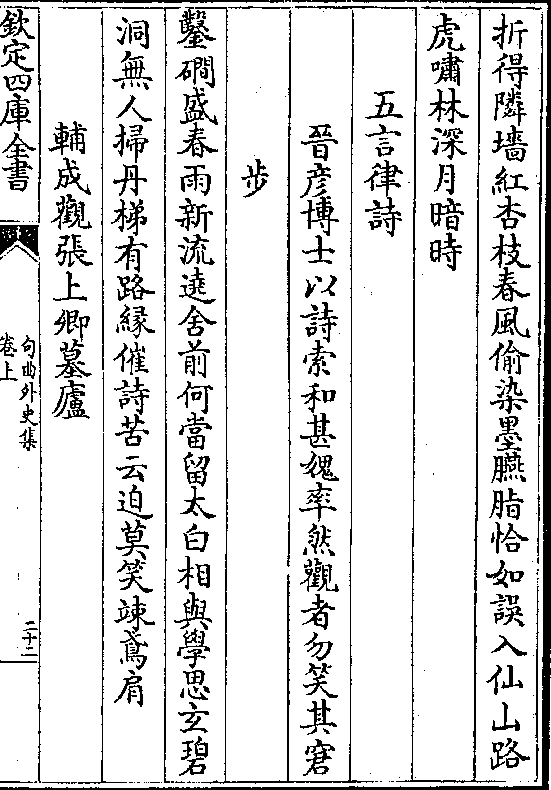 折得隣墻紅杏枝春風偷染墨臙脂恰如誤入仙山路
虎嘯林深月暗時
五言律詩
晉彦博士以詩索和甚媿率然觀者勿笑其窘
步
鑿磵盛春雨新流遶舍前何當留太白相與學思玄碧
洞無人掃丹梯有路縁催詩苦云迫莫笑竦鳶肩
輔成觀張上卿墓廬
欽定四庫全書
句曲外史集
卷上
二十二